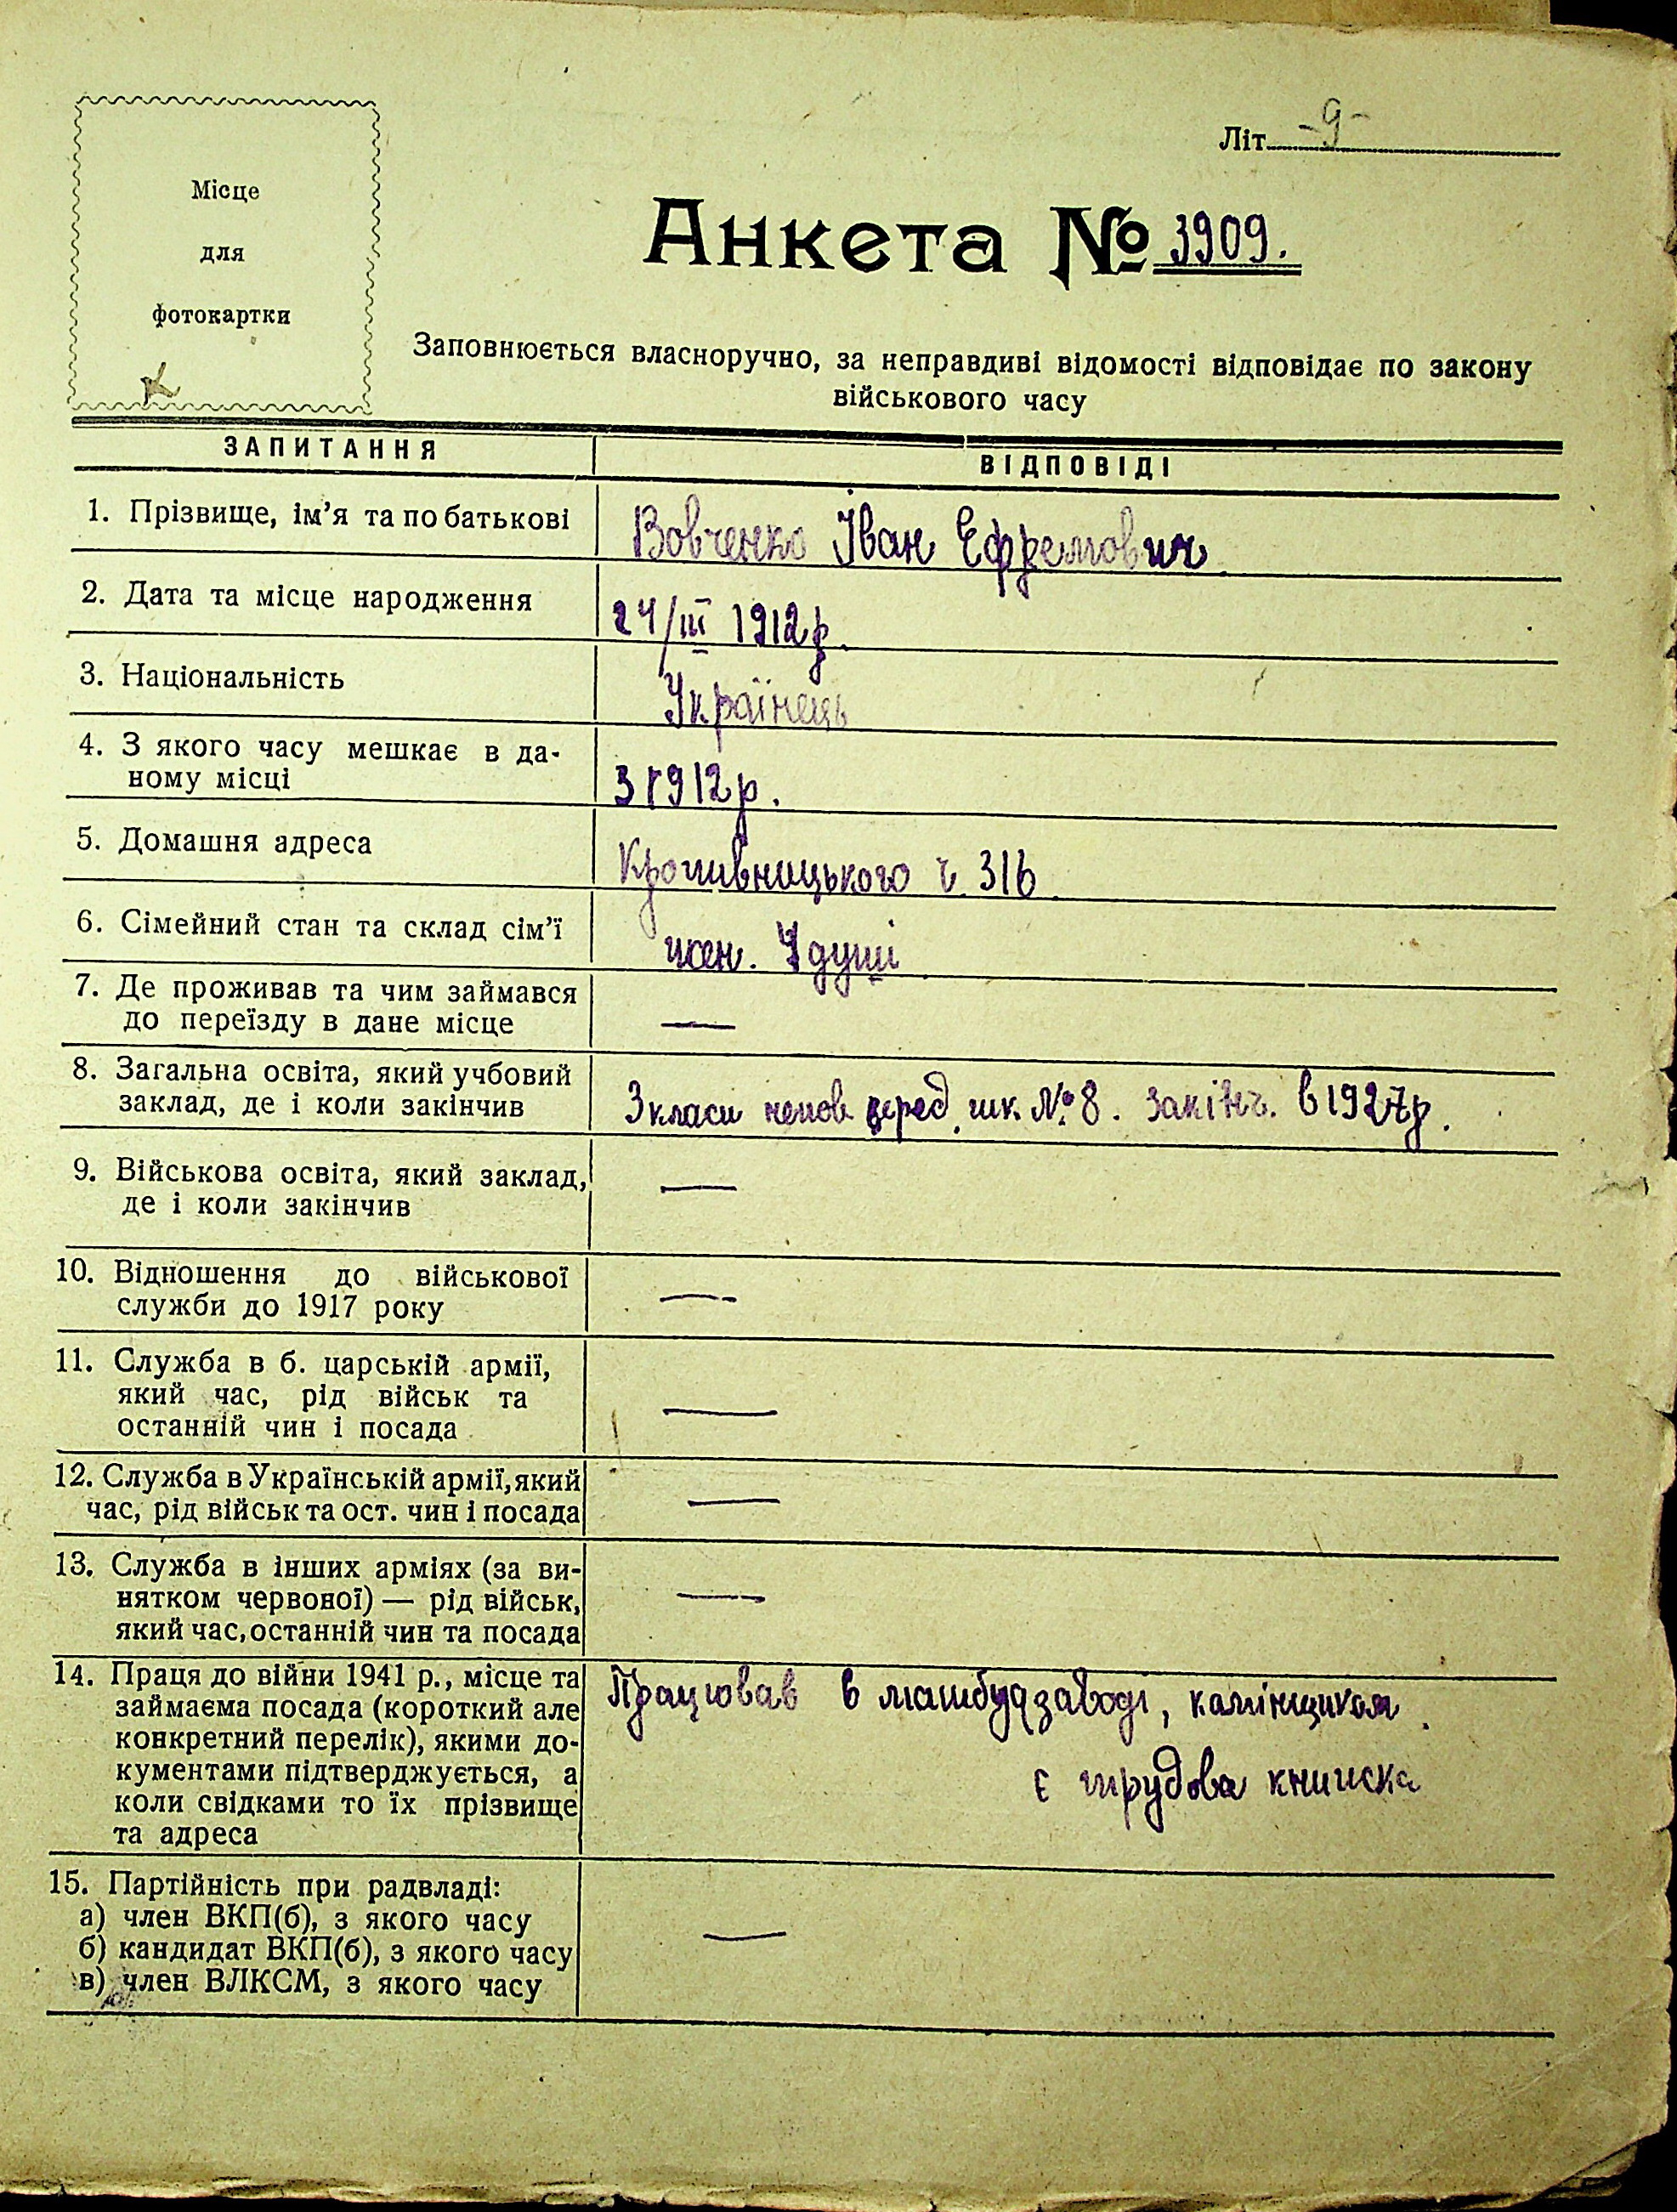 Літ. -9-
Місце
для
фотокартки
Анкета № 3909.
Заповнюється власноручно, за неправдиві відомості відповідає по закону
військового часу
ЗАПИТАННЯ
ВІДПОВІДІ
1. Прізвище, ім’я та по батькові
Вовченко Іван Ефремович
2. Дата та місце народження
24/III 1912р.
3. Національність
Українець
4. З якого часу мешкає в да-
ному місці
З 1912р.
5. Домашня адреса
Кропивницького ч. 31б
6. Сімейний стан та склад сім’ї
жен. 4 душі
7. Де проживав та чим займався
до переїзду в дане місце
—
8. Загальна освіта, який учбовий
заклад, де і коли закінчив
3 класи непов. серед. шк. №8. закінч. в 1927р.
9. Військова освіта, який заклад,
де і коли закінчив
—
10. Відношення до військової
служби до 1917 року
—
11. Служба в б. царській армії,
який час, рід військ та
останній чин і посада
—
12. Служба в Українській армії, який
час, рід військ та ост. чин і посада
—
13. Служба в інших арміях (за ви-
нятком червоної) — рід військ,
який час, останній чин та посада
—
14. Праця до війни 1941 р., місце та
займаєма посада (короткий але
конкретний перелік), якими до-
кументами підтверджується, а
коли свідками то їх прізвище
та адреса
Працював в машбудзаводі, камінщиком.
є трудова книжка
15. Партійність при радвладі:
а) член ВКП(б), з якого часу
б) кандидат ВКП(б), з якого часу
в) член ВЛКСМ, з якого часу
—